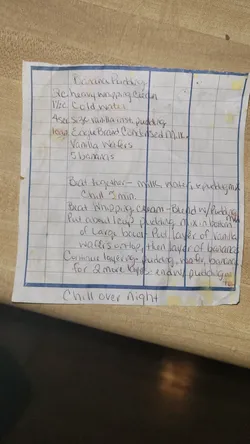 Banana Pudding
2c. heavy whipping Cream
1½c Cold water
4oz size vanilla inst. pudding
Eagle Brand Condensed Milk
Vanilla wafers
5 bananas
Beat together - milk, water, & pudding mix
Chill 5 min.
Beat whipping cream - Blend w/ Pudding
Put about 1 cup pudding mix in bottom
of large bowl - Put layer of vanilla
wafers on top, then layer of bananas
Continue layering - pudding, wafer, banana
for 2 more layers - end w/ pudding
Chill over night